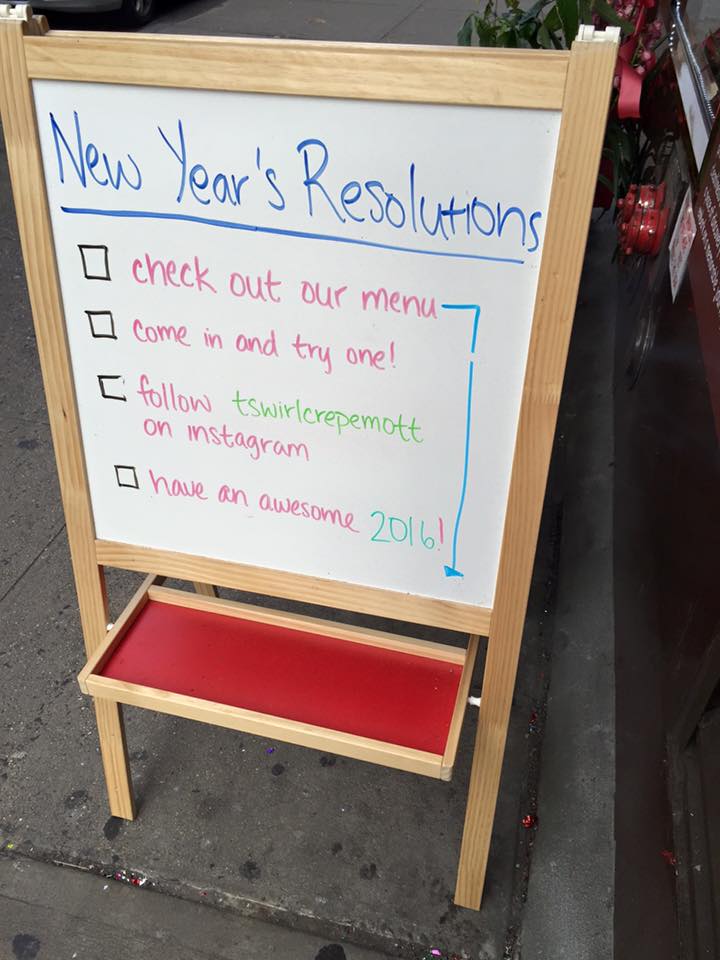 New Year's Resolutions
check out our menu
come in and try one!
follow tswirlcrepemott
on instagram
have an awesome 2016!